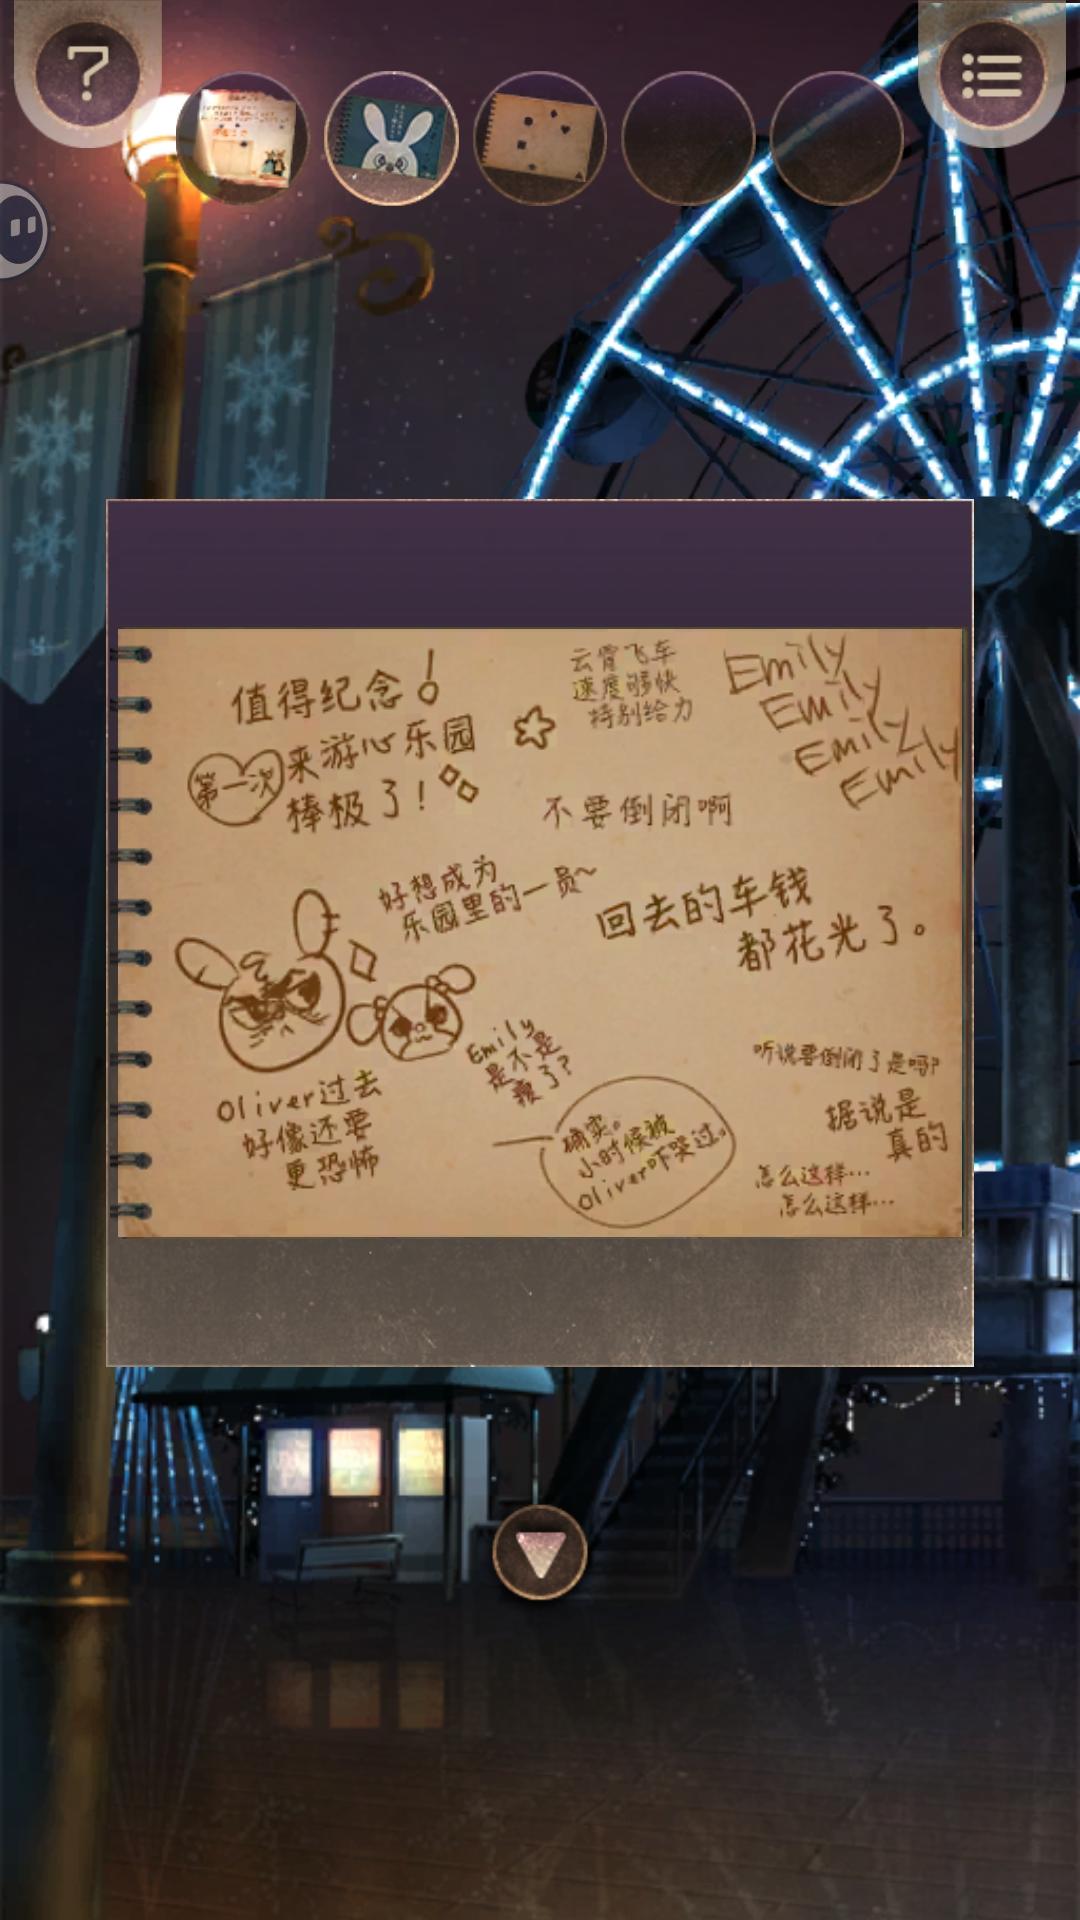 值得纪念!
第一次来游心乐园
棒极了!
云霄飞车
速度够快
特别给力
Emily
Emily
Emily
Emily
不要倒闭啊
好想成为
乐园里的一员~
回去的车钱
都花光了。
Oliver过去
好像还要
更恐怖
Emily
是不是
瘦了?
确实。
小时候被
Oliver吓哭过。
听说要倒闭了是吗?
据说是
真的
怎么这样...
怎么这样...